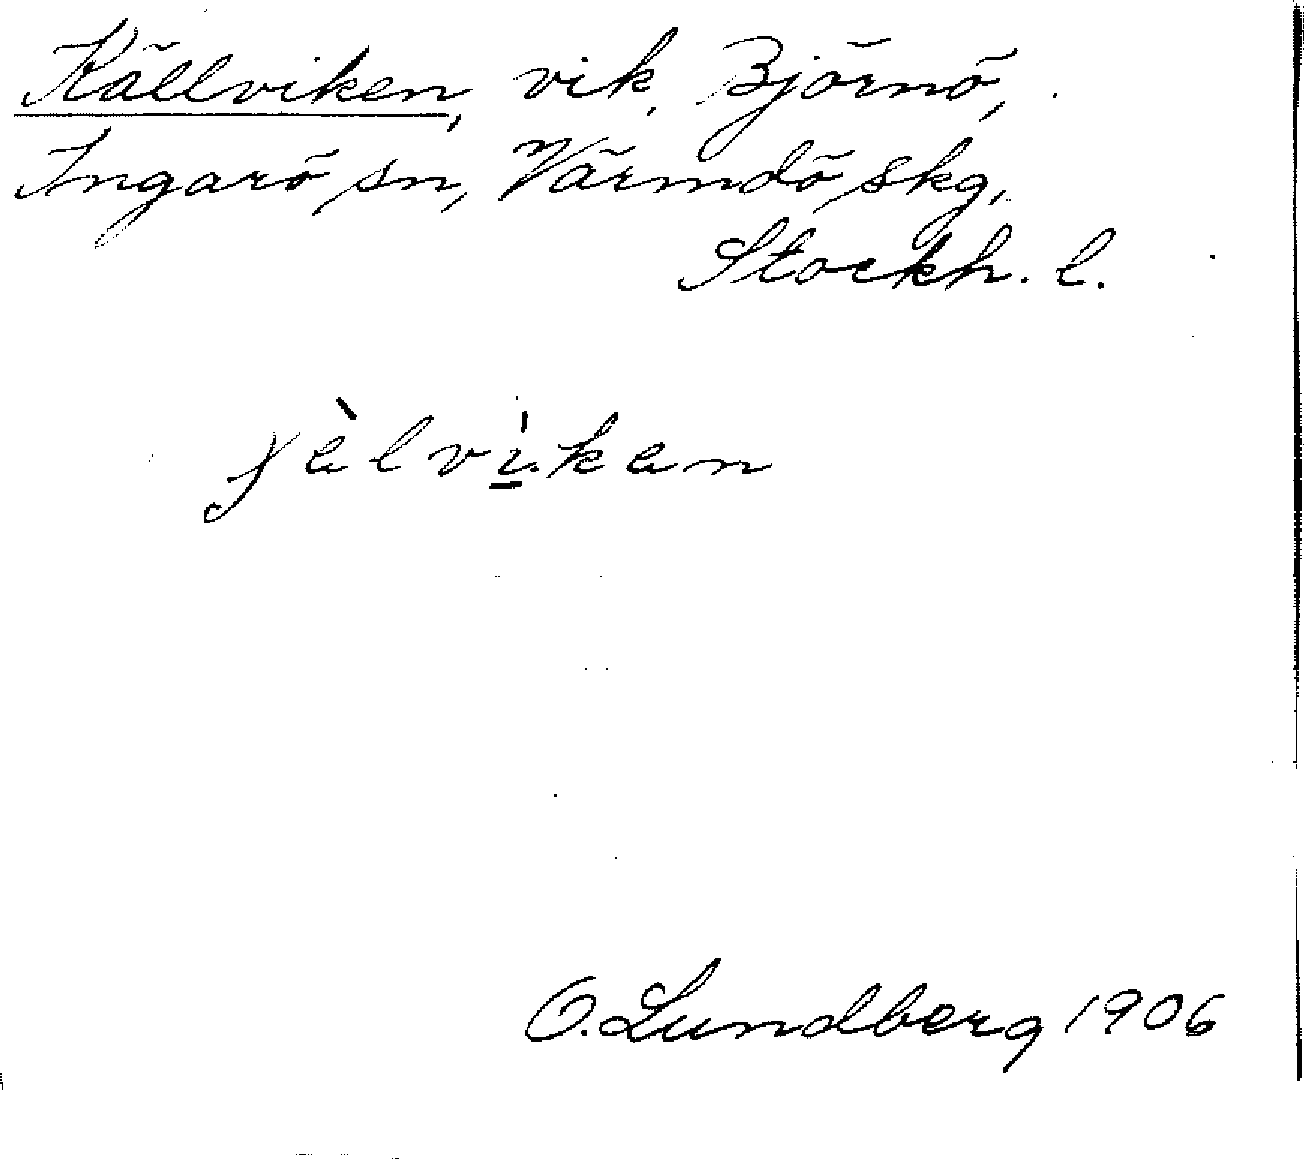 Källviken, vik, Björnö,
Ingarö sn, Värmdö skg,
Stockh. l.
O. Lundberg 1906